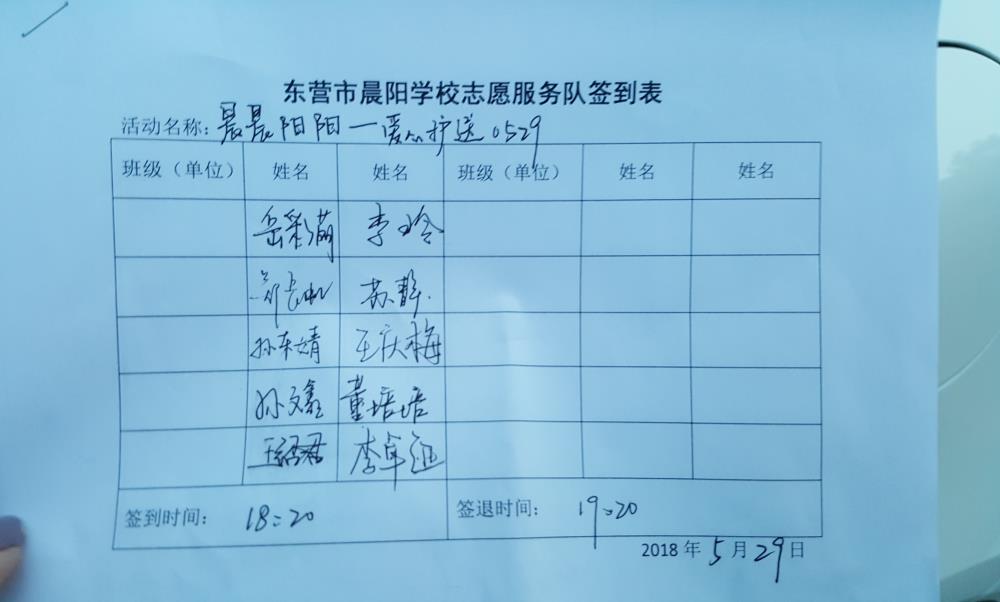 东营市晨阳学校志愿服务队签到表
活动名称：晨晨阳阳一爱心护送0529
班级（单位） 姓名 姓名 班级（单位） 姓名 姓名
岳彩满 李玲
苏静
孙东婧 王庆梅
孙文鑫 董培培
王君 李卓
签到时间： 18:20 签退时间： 19:20
2018年5月29日